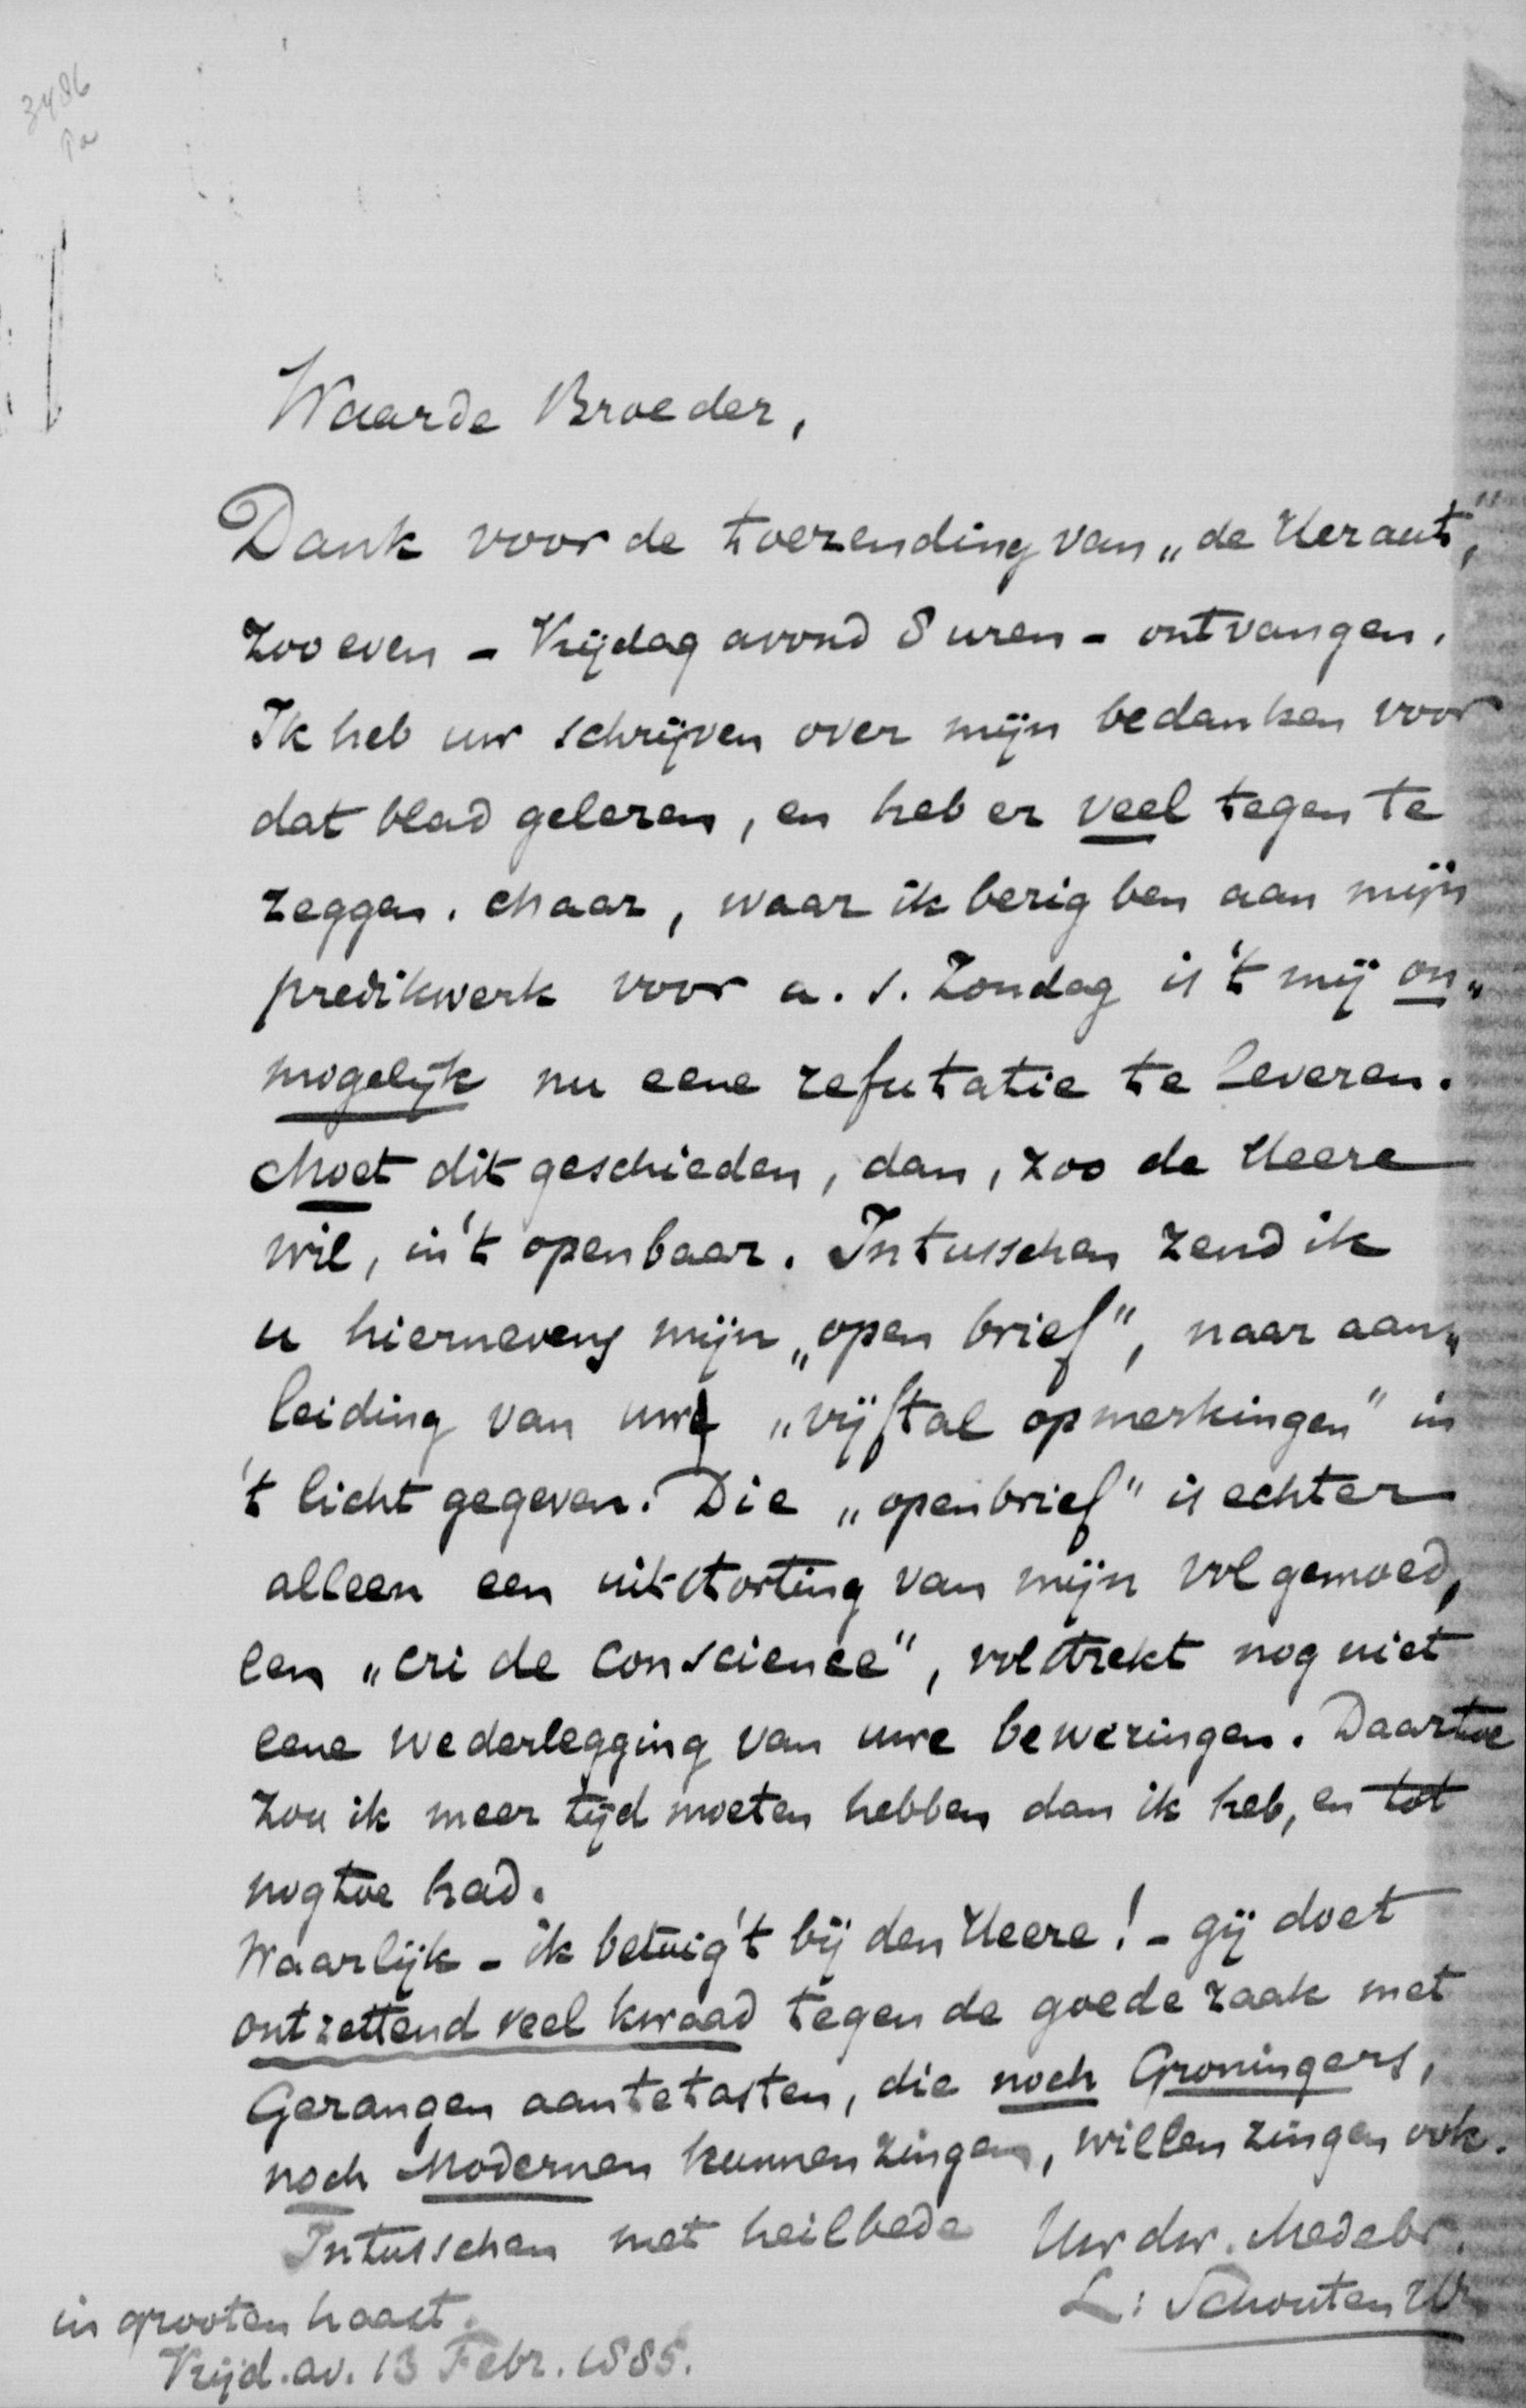 3486
Pa
Waarde Broeder,
Dank voor de toezending van „de Heraut",
zoo even – Vrijdag avond 8 uren – ontvangen.
Ik heb uw schrijven over mijn bedanken voor
dat blad gelezen, en heb er veel tegen te
zeggen. Maar, waar ik bezig ben aan mijn
predikwerk voor a.s. Zondag is 't mij on„
mogelijk nu eene refutatie te leveren.
Moet dit geschieden, dan, zoo de Heere
wil, in 't openbaar. Intusschen zend ik
u hiernevens mijn „open brief", naar aan„
leiding van uw „vijftal opmerkingen" in
't licht gegeven. Die „open brief" is echter
alleen een uitstorting van mijn vol gemoed,
een „cri de conscience", volstrekt nog niet
eene wederlegging van uwe beweringen. Daartoe
zou ik meer tijd moeten hebben dan ik heb, en tot
nogtoe had.
Waarlijk – ik betuig 't bij den Heere! – gij doet
ontzettend veel kwaad tegen de goede zaak met
Gezangen aantetasten, die noch Groningers,
noch Modernen kunnen zingen, willen zingen ook.
Intusschen met heilbede Uw dw. Medebr.
L: Schouten Hz
in grooten haast.
Vrijd. av. 13 Febr. 1885.